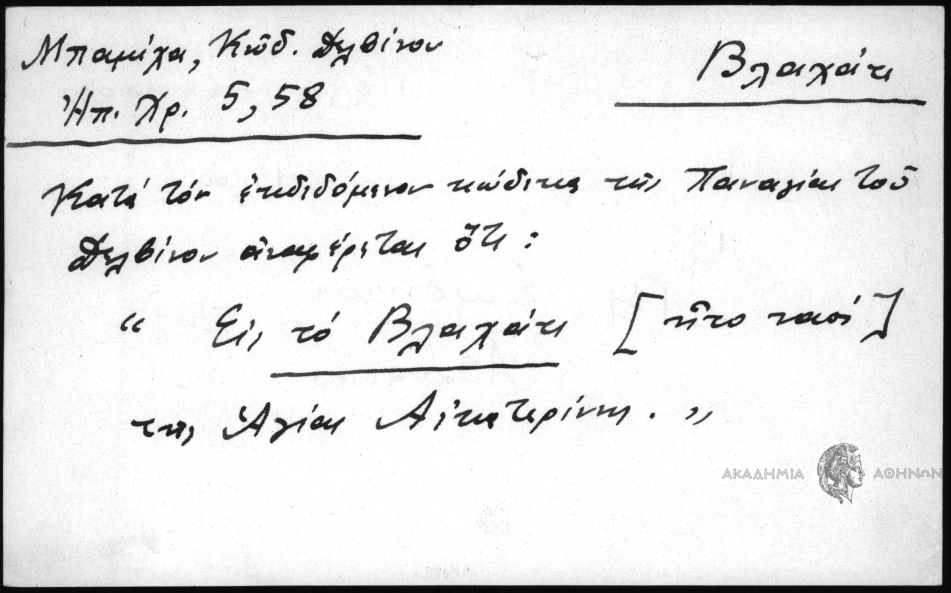 Μπαμίχα, Κῶδ. Δελβίνου
Βλαχάτι
Ἠπ. Χρ. 5, 58
Κατά τόν ἐκδιδόμενον κώδικα τῆς Παναγίας τοῦ
Δελβίνου ἀναφέρεται ὅτι:
“ Εἰς τό Βλαχάτι [ἦτο ναός]
τῆς Ἁγίας Αἰκατερίνης. „
ΑΚΑΔΗΜΙΑ ΑΘΗΝΩΝ